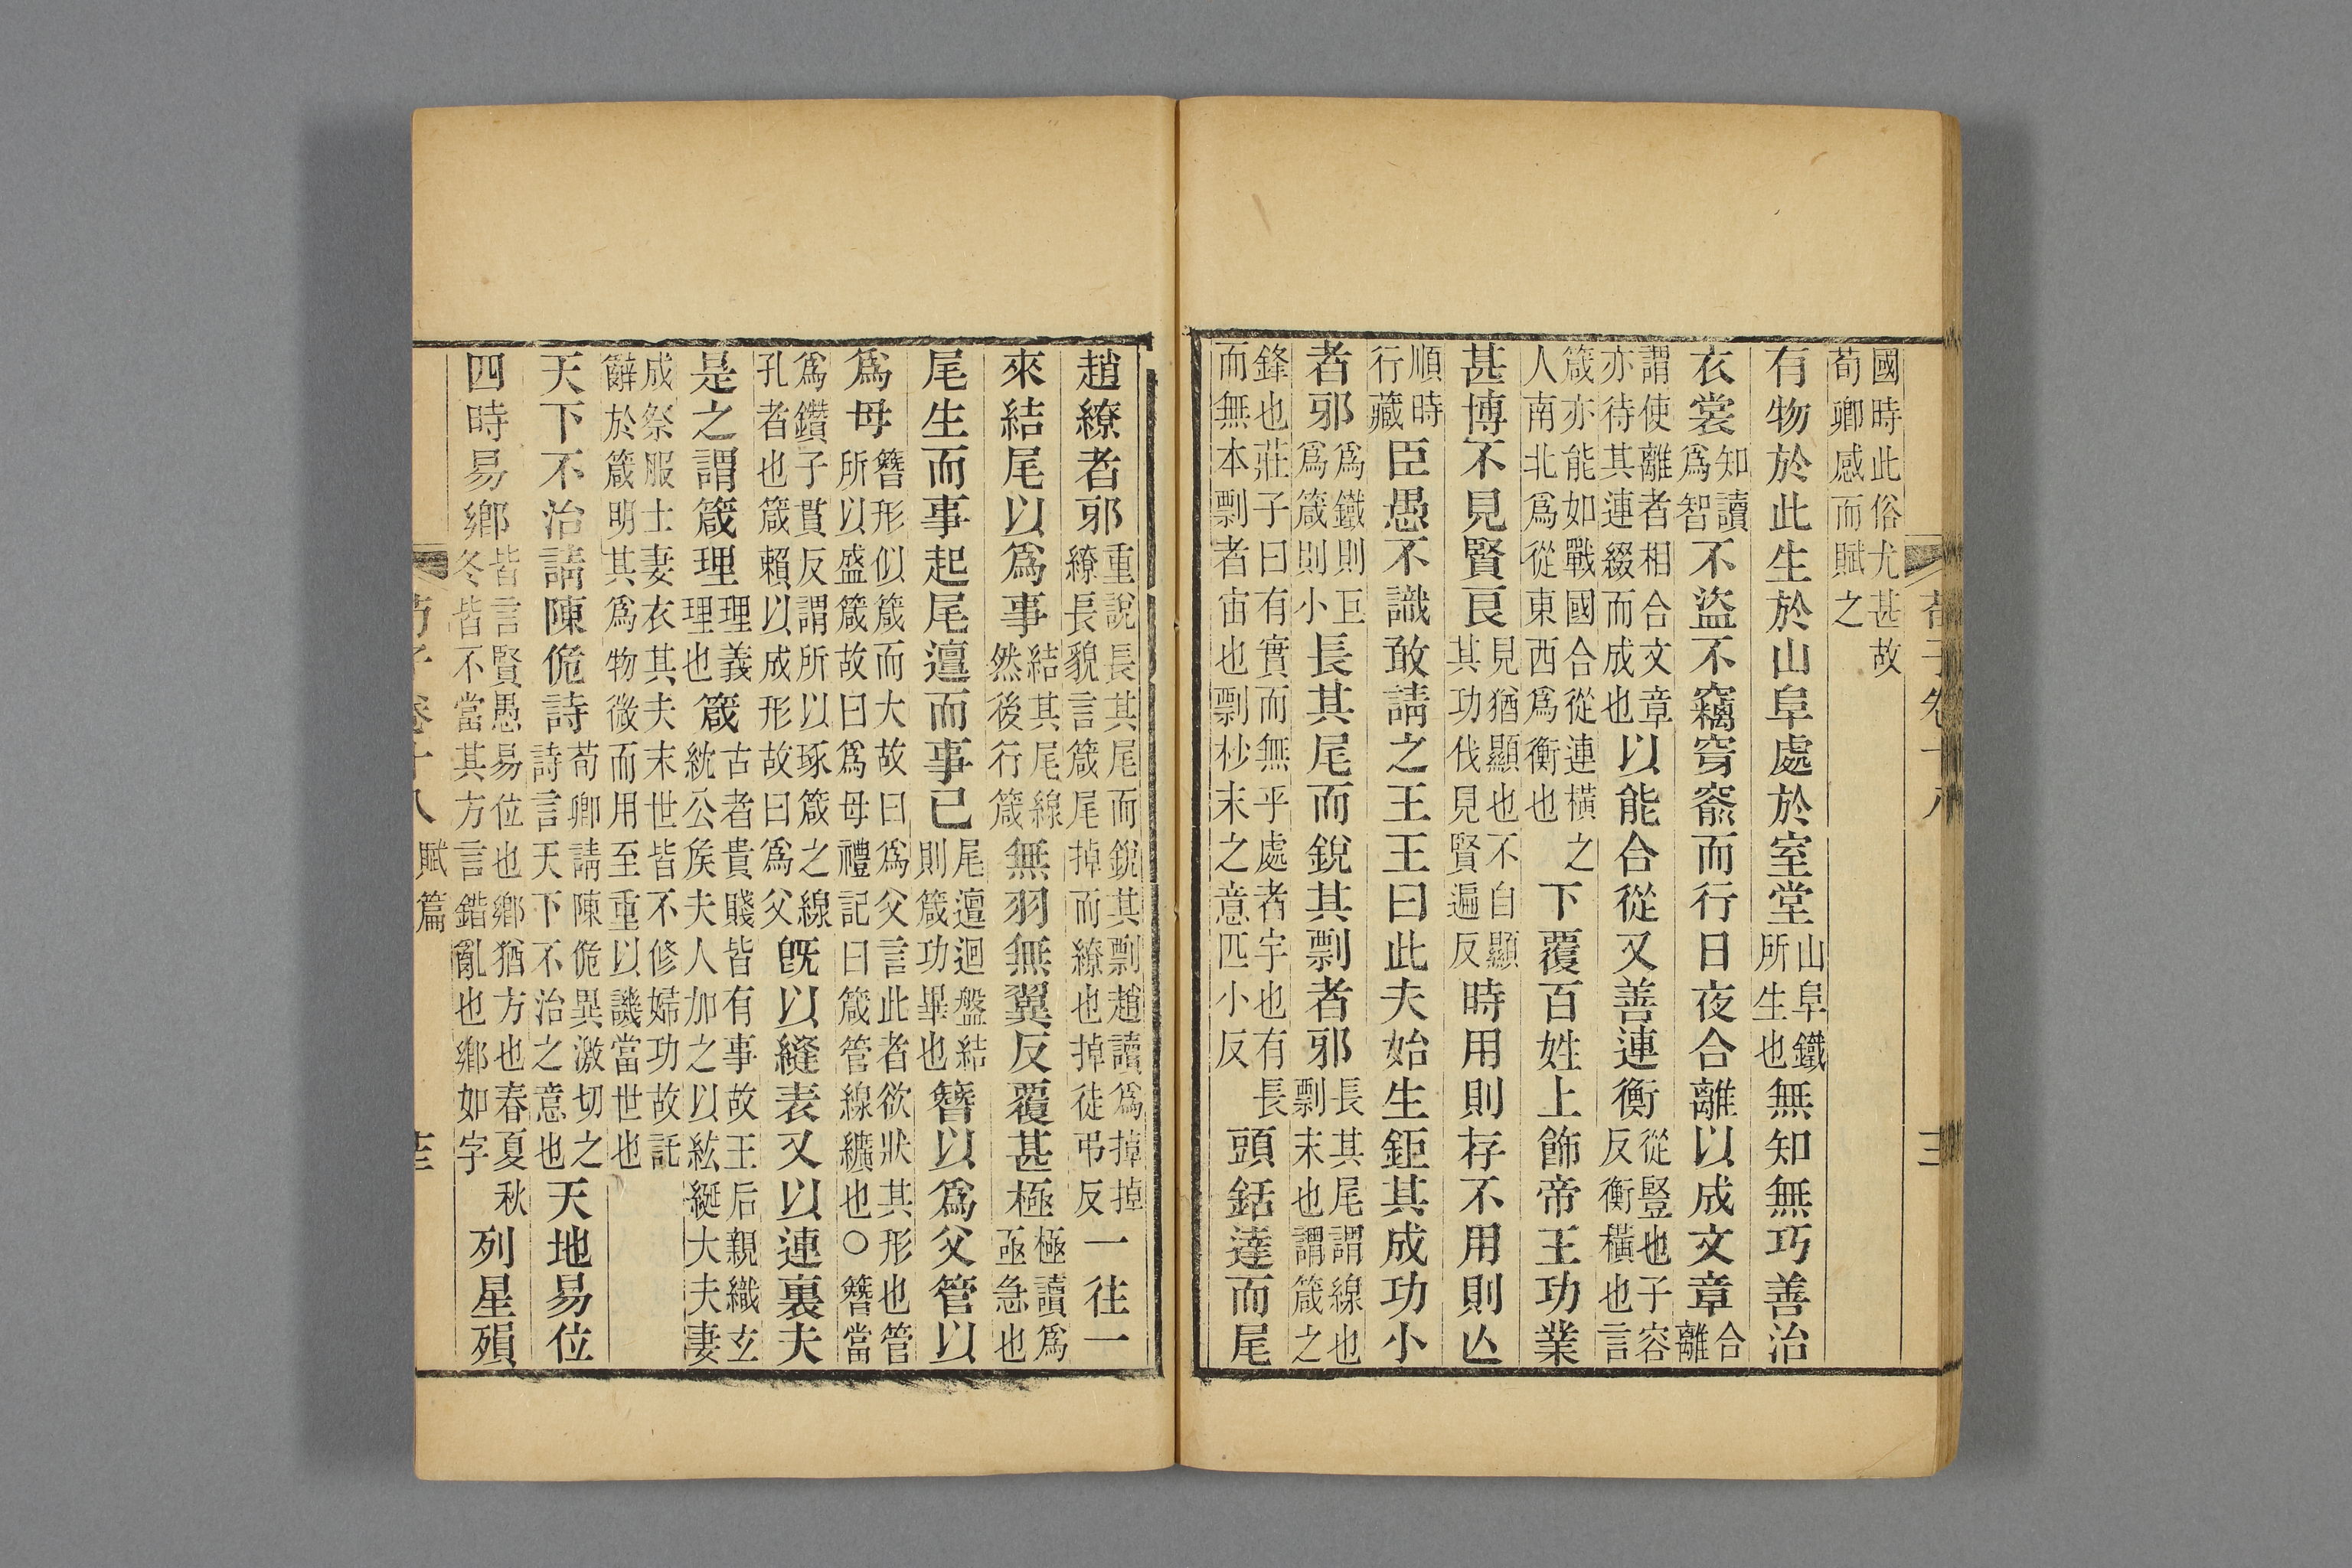 荀子卷十八
國時此俗尤甚故荀卿感而賦之
有物於此生於山阜處於室堂山阜鐵所生也無知無巧善治
衣裳知讀爲智不盜不竊穿窬而行日夜合離以成文章合離
謂使離者相合文章亦待其連綴而成也以能合從又善連衡從豎也子容反衡橫也言
箴亦能如戰國合從連橫之人南北爲從東西爲衡也下覆百姓上飾帝王功業
甚博不見賢良見猶顯也不自顯其功伐見賢遍反時用則存不用則亾
順時行藏臣愚不識敢請之王王曰此夫始生鉅其成功小
者邪爲鐵則巨爲箴則小長其尾而銳其剽者邪長其尾謂線也剽末也謂箴之
鋒也莊子曰有實而無乎處者宇也有長而無本剽者宙也剽杪末之意匹小反頭銛達而尾
趙繚者邪重說長其尾而銳其剽趙讀爲掉掉繚長貌言箴尾掉而繚也掉徒弔反一往一
來結尾以爲事結其尾線然後行箴無羽無翼反覆甚極極讀爲亟急也
尾生而事起尾邅而事已尾邅迴盤結則箴功畢也簪以爲父管以
爲母簪形似箴而大故曰爲父言此者欲狀其形也管所以盛箴故曰爲母禮記曰箴管線纊也○簪當
爲鑽子貫反謂所以琢箴之線孔者也箴賴以成形故曰爲父旣以縫表又以連裏夫
是之謂箴理理義理也箴古者貴賤皆有事故王后親織玄紞公矦夫人加之以紘綖大夫妻
成祭服士妻衣其夫末世皆不修婦功故託辭於箴明其爲物微而用至重以譏當世也
天下不治請陳佹詩荀卿請陳佹異激切之詩言天下不治之意也天地易位
四時易鄉皆言賢愚易位也鄉猶方也春夏秋冬皆不當其方言錯亂也鄉如字列星殞
荀子卷十八 賦篇